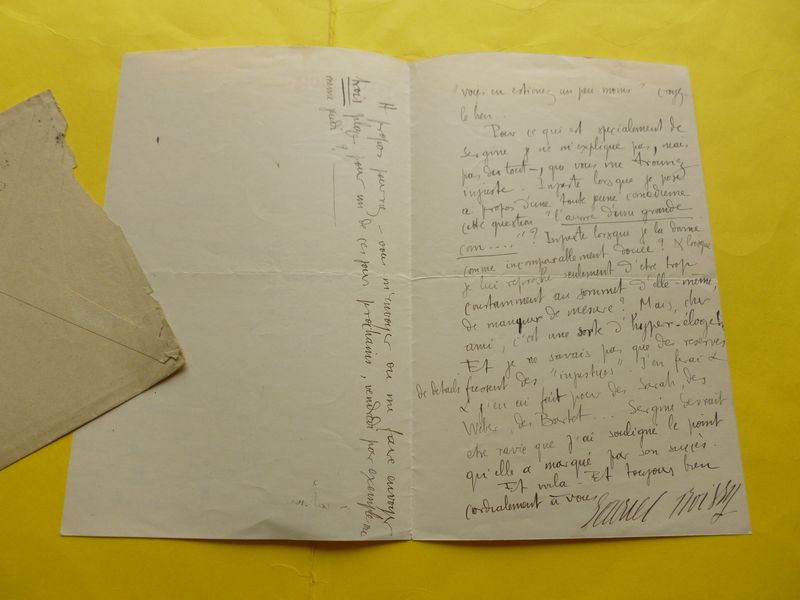 "vous en estimez un peu moins" croyez-
le bien.
Pour ce qui est specialement de
Sergine je ne m'explique pas, mais
pas du tout, que vous me trouviez
injuste. Injuste lorsque je pose
a propos d'une toute jeune comédienne
cette question "l'aurore d'une grande
com....."? Injuste lorsque je la donne
comme incomparablement douée? & lorsque
je lui reproche seulement d'être trop
constamment au sommet d'elle-même,
de manquer de mesure? Mais, cher
ami, c'est une sorte d'hyper-éloge!
Et je ne savais pas que des reserves
de details fussent des "injustices" J'en ferai &
& j'en ai fait pour des Sarah, des
des Bartet... Sergine devrait
etre ravie que j'ai souligné le point
qu'elle a marqué par son succès.
Et voila - Et toujours bien
cordialement à vous
A propos pourriez-vous m'envoyer ou me faire envoyer
trois places pour un de ces jours prochains, vendredi par exemple ou
meme jeudi?